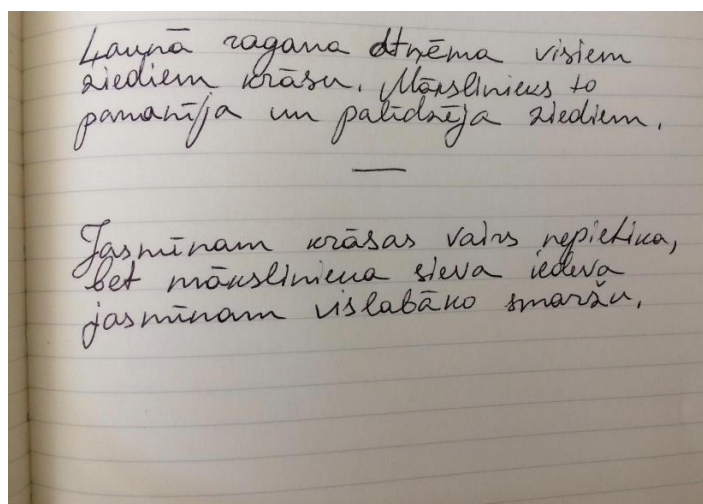 Ļaunā ragana atņēma visiem
ziediem krāsu. Mākslinieks to
pamanīja un palīdzēja ziediem.
—
Jasmīnam krāsas vairs nepietika,
bet mākslinieka sieva iedeva
jasmīnam vislabāko smaržu.